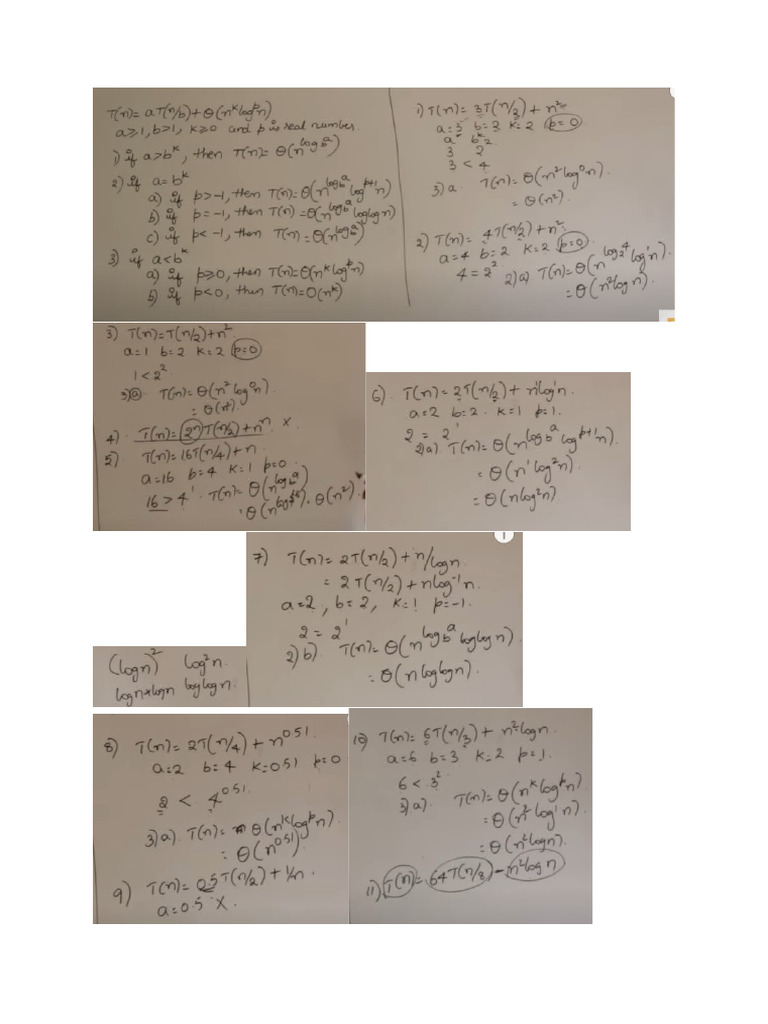 T(n) = aT(n/b) + θ(n^k log^p n)
a≥1, b>1, k≥0 and p is real number.
1) if a>b^k, then T(n) = θ(n^log_b a)
2) if a=b^k
a) if p>-1, then T(n) = θ(n^log_b a log^p+1 n)
b) if p=-1, then T(n) = θ(n^log_b a loglogn)
c) if p<-1, then T(n) = θ(n^log_b a)
3) if a<b^k
a) if p≥0, then T(n) = θ(n^k log^p n)
b) if p<0, then T(n) = O(n^k)
1) T(n) = 3T(n/2) + n^2
a=3 b=2 k=2 p=0
a b^k
3 2^2
3 < 4
3) a. T(n) = θ(n^2 log^0 n)
= θ(n^2).
2) T(n) = 4T(n/2) + n^2
a=4 b=2 k=2 p=0.
4 = 2^2 2) a) T(n) = θ(n^log_2 4 log^1 n)
= θ(n^2 logn).
3) T(n) = T(n/2) + n^2
a=1 b=2 k=2 p=0
1 < 2^2
3) a) T(n) = θ(n^2 log^0 n).
= θ(n^2).
4) T(n) = 2^n T(n/2) + n^n x
5) T(n) = 16T(n/4) + n.
a=16 b=4 k=1 p=0.
16 > 4^1. T(n) = θ(n^log_b a)
= θ(n^log_4 16) = θ(n^2)
6) T(n) = 2T(n/2) + n^1 log^1 n.
a=2 b=2. k=1 p=1.
2 = 2^1
2) a) T(n) = θ(n^log_b a log^p+1 n)
= θ(n^1 log^2 n).
= θ(n log^2 n)
7) T(n) = 2T(n/2) + n/logn.
= 2T(n/2) + n log^-1 n.
a=2, b=2, k=1 p=-1.
2 = 2^1
2) b). T(n) = θ(n^log_b a loglogn).
= θ(n loglogn).
(logn)^2 log^2 n.
logn*logn loglogn.
8) T(n) = 2T(n/4) + n^0.51
a=2 b=4 k=0.51 p=0
2 < 4^0.51
3) a). T(n) = θ(n^k log^p n)
= θ(n^0.51)
9) T(n) = 0.5T(n/2) + 1/n.
a=0.5 X.
10) T(n) = 6T(n/3) + n^2 logn.
a=6 b=3 k=2 p=1.
6 < 3^2
3) a). T(n) = θ(n^k log^p n)
= θ(n^2 log^1 n)
= θ(n^2 logn).
11) T(n) = 64T(n/8) - n^2 logn